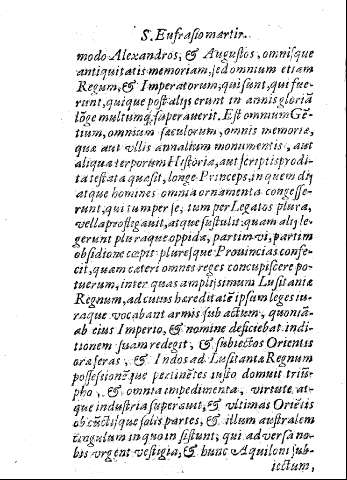 S. Eufrasio martir.
modo Alexandros, & Augustos, omnisque
antiquitatis memoriam, sed omnium etiam
Regum, & Imperatorum, qui sunt, qui fue-
runt, quique post alijs erunt in annis gloriã
lõge multumq́; superauerit. Est omnium Gē
tium, omnium sæculorum, omnis memoriæ,
quæ aut vllis annalium monumentis, aut
aliqua temporum Historia, aut scriptis prodi
ta testata quæ sit, longe Princeps, in quem dij
atque homines omnia ornamenta congesse-
runt, qui tum per se, tum per Legatos plura,
vella profligauit, atque sustulit: quam alij le
gerunt pluraque oppida, partim vi, partim
obsidione cœpit: pluresque Prouincias confe-
cit, quam cæteri omnes reges concupiscere po-
tuerum, inter quas amplissimum Lusitaniæ
Regnum, ad cuius hæreditatē ipsum leges iu-
raque vocabant armis subactum, quoniã
ab eius Imperio, & nomine deficiebat in di-
tionem suam redegit, & subiectos Orientis
oras feras, & Indos ad Lusitaniæ Regnum
possessionēque pertinētes iusto domuit triũ-
pho, & omnia impedimenta, virtute, at-
que industria superauit, & vltimas Oriētis
obcũctisque solis partes, & illum australem
cingulum in quo insistunt, qui aduersa no-
bis vrgent vestigia, & hunc Aquiloni sub-
iectum,